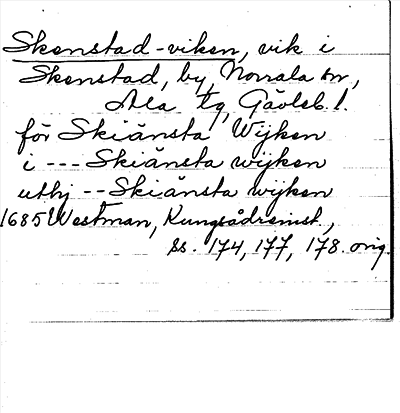 Skenstad-viken, vik i
Skenstad, by, Norrala sn,
Ala tg, Gävleb. l.
för Skiänsta Wijken
i --- Skiänsta wijken
uthj -- Skiänsta wijken
1685 Westman, Kungsådreinst.,
ss. 174, 177, 178. orig.